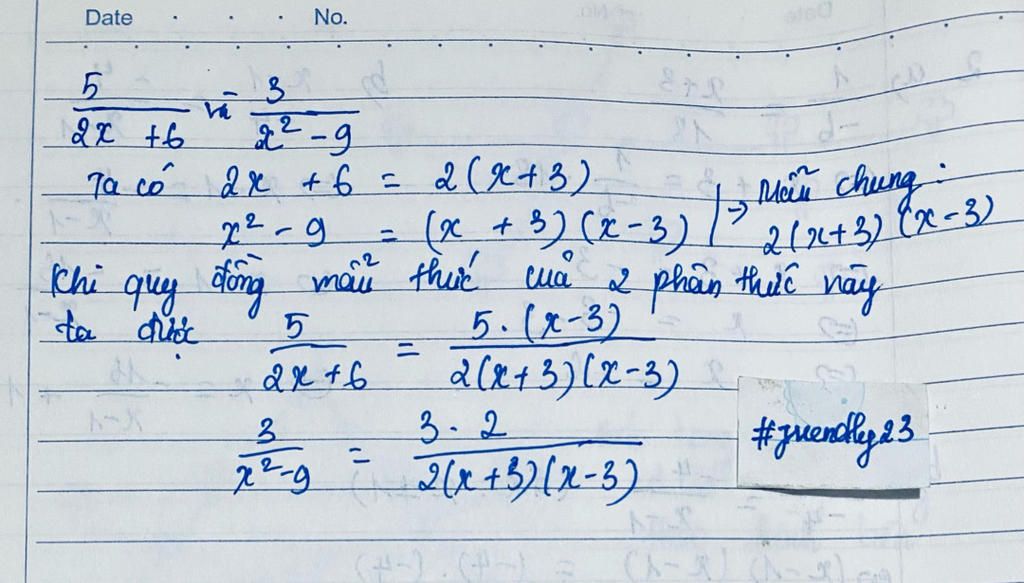 Date . . . No.
5/(2x + 6) và 3/(x² - 9)
Ta có 2x + 6 = 2(x + 3)
x² - 9 = (x + 3)(x - 3) | → Mẫu chung: 2(x+3)(x-3)
Khi quy đồng mẫu thức của 2 phân thức này
ta được 5/(2x + 6) = 5 . (x-3)/2(x+3)(x-3)
3/(x² - 9) = 3 . 2/2(x+3)(x-3)